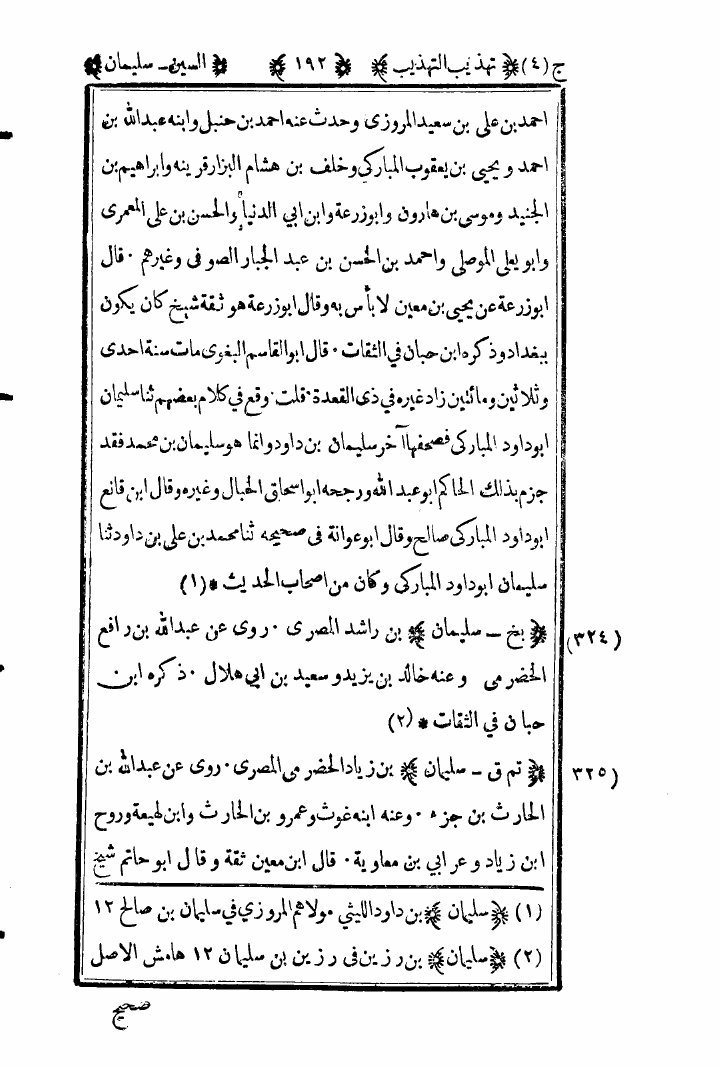 ج (٤) ﴿ تهذيب التهذيب ﴾ ﴿ ١٩٢ ﴾ ﴿ السين ــ سليمان ﴾
احمد بن على بن سعيد المروزى وحدث عنه احمد بن حنبل وابنه عبد الله بن
احمد ويحيى بن يعقوب المباركى وخلف بن هشام البزار قرينه وابراهيم بن
الجنيد وموسى بن هارون وابوزرعة وابن ابي الدنيا والحسن بن على المعمرى
وابو يعلى الموصلى واحمد بن الحسن بن عبد الجبار الصوفى وغيرهم ٠ قال
ابوزرعة عن يحيى بن معين لا بأس به وقال ابوزرعة هو ثقة شيخ كان يكون
ببغداد وذكره ابن حبان في الثقات ٠ قال ابو القاسم البغوى مات سنة احدى
وثلاثين ومائتين زاد غيره في ذى القعدة ٠ قلت ٠ وقع في كلام بعضهم ثنا سليمان
ابو داود المباركى فصحفها آخر سليمان بن داود وانما هو سليمان بن محمد فقد
جزم بذلك الحاكم ابو عبد الله ورجحه ابو اسحاق الحبال وغيره وقال ابن قانع
ابو داود المباركى صالح وقال ابو عوانة فى صحيحه ثنا محمد بن على بن داود ثنا
سليمان ابو داود المباركى وكان من اصحاب الحديث * (١)
(٣٢٤) ﴿ بخ ــ سليمان ﴾ بن راشد المصرى ٠ روى عن عبد الله بن رافع
الحضرمى وعنه خالد بن يزيد وسعيد بن ابي هلال ٠ ذكره ابن
حبان في الثقات * (٢)
(٣٢٥ ﴿ تم ق ــ سليمان ﴾ بن زياد الحضرمى المصرى ٠ روى عن عبد الله بن
الحارث بن جزء ٠ وعنه ابنه غوث وعمرو بن الحارث وابن لهيعة وروح
ابن زياد وعرابي بن معاوية ٠ قال ابن معين ثقة وقال ابو حاتم شيخ
(١) ﴿ سليمان ﴾ بن داود الليثي مولاهم المروزي في سليمان بن صالح ١٢
(٢) ﴿ سليمان ﴾ بن رزين فى رزين بن سليمان ١٢ هامش الاصل
صحيح